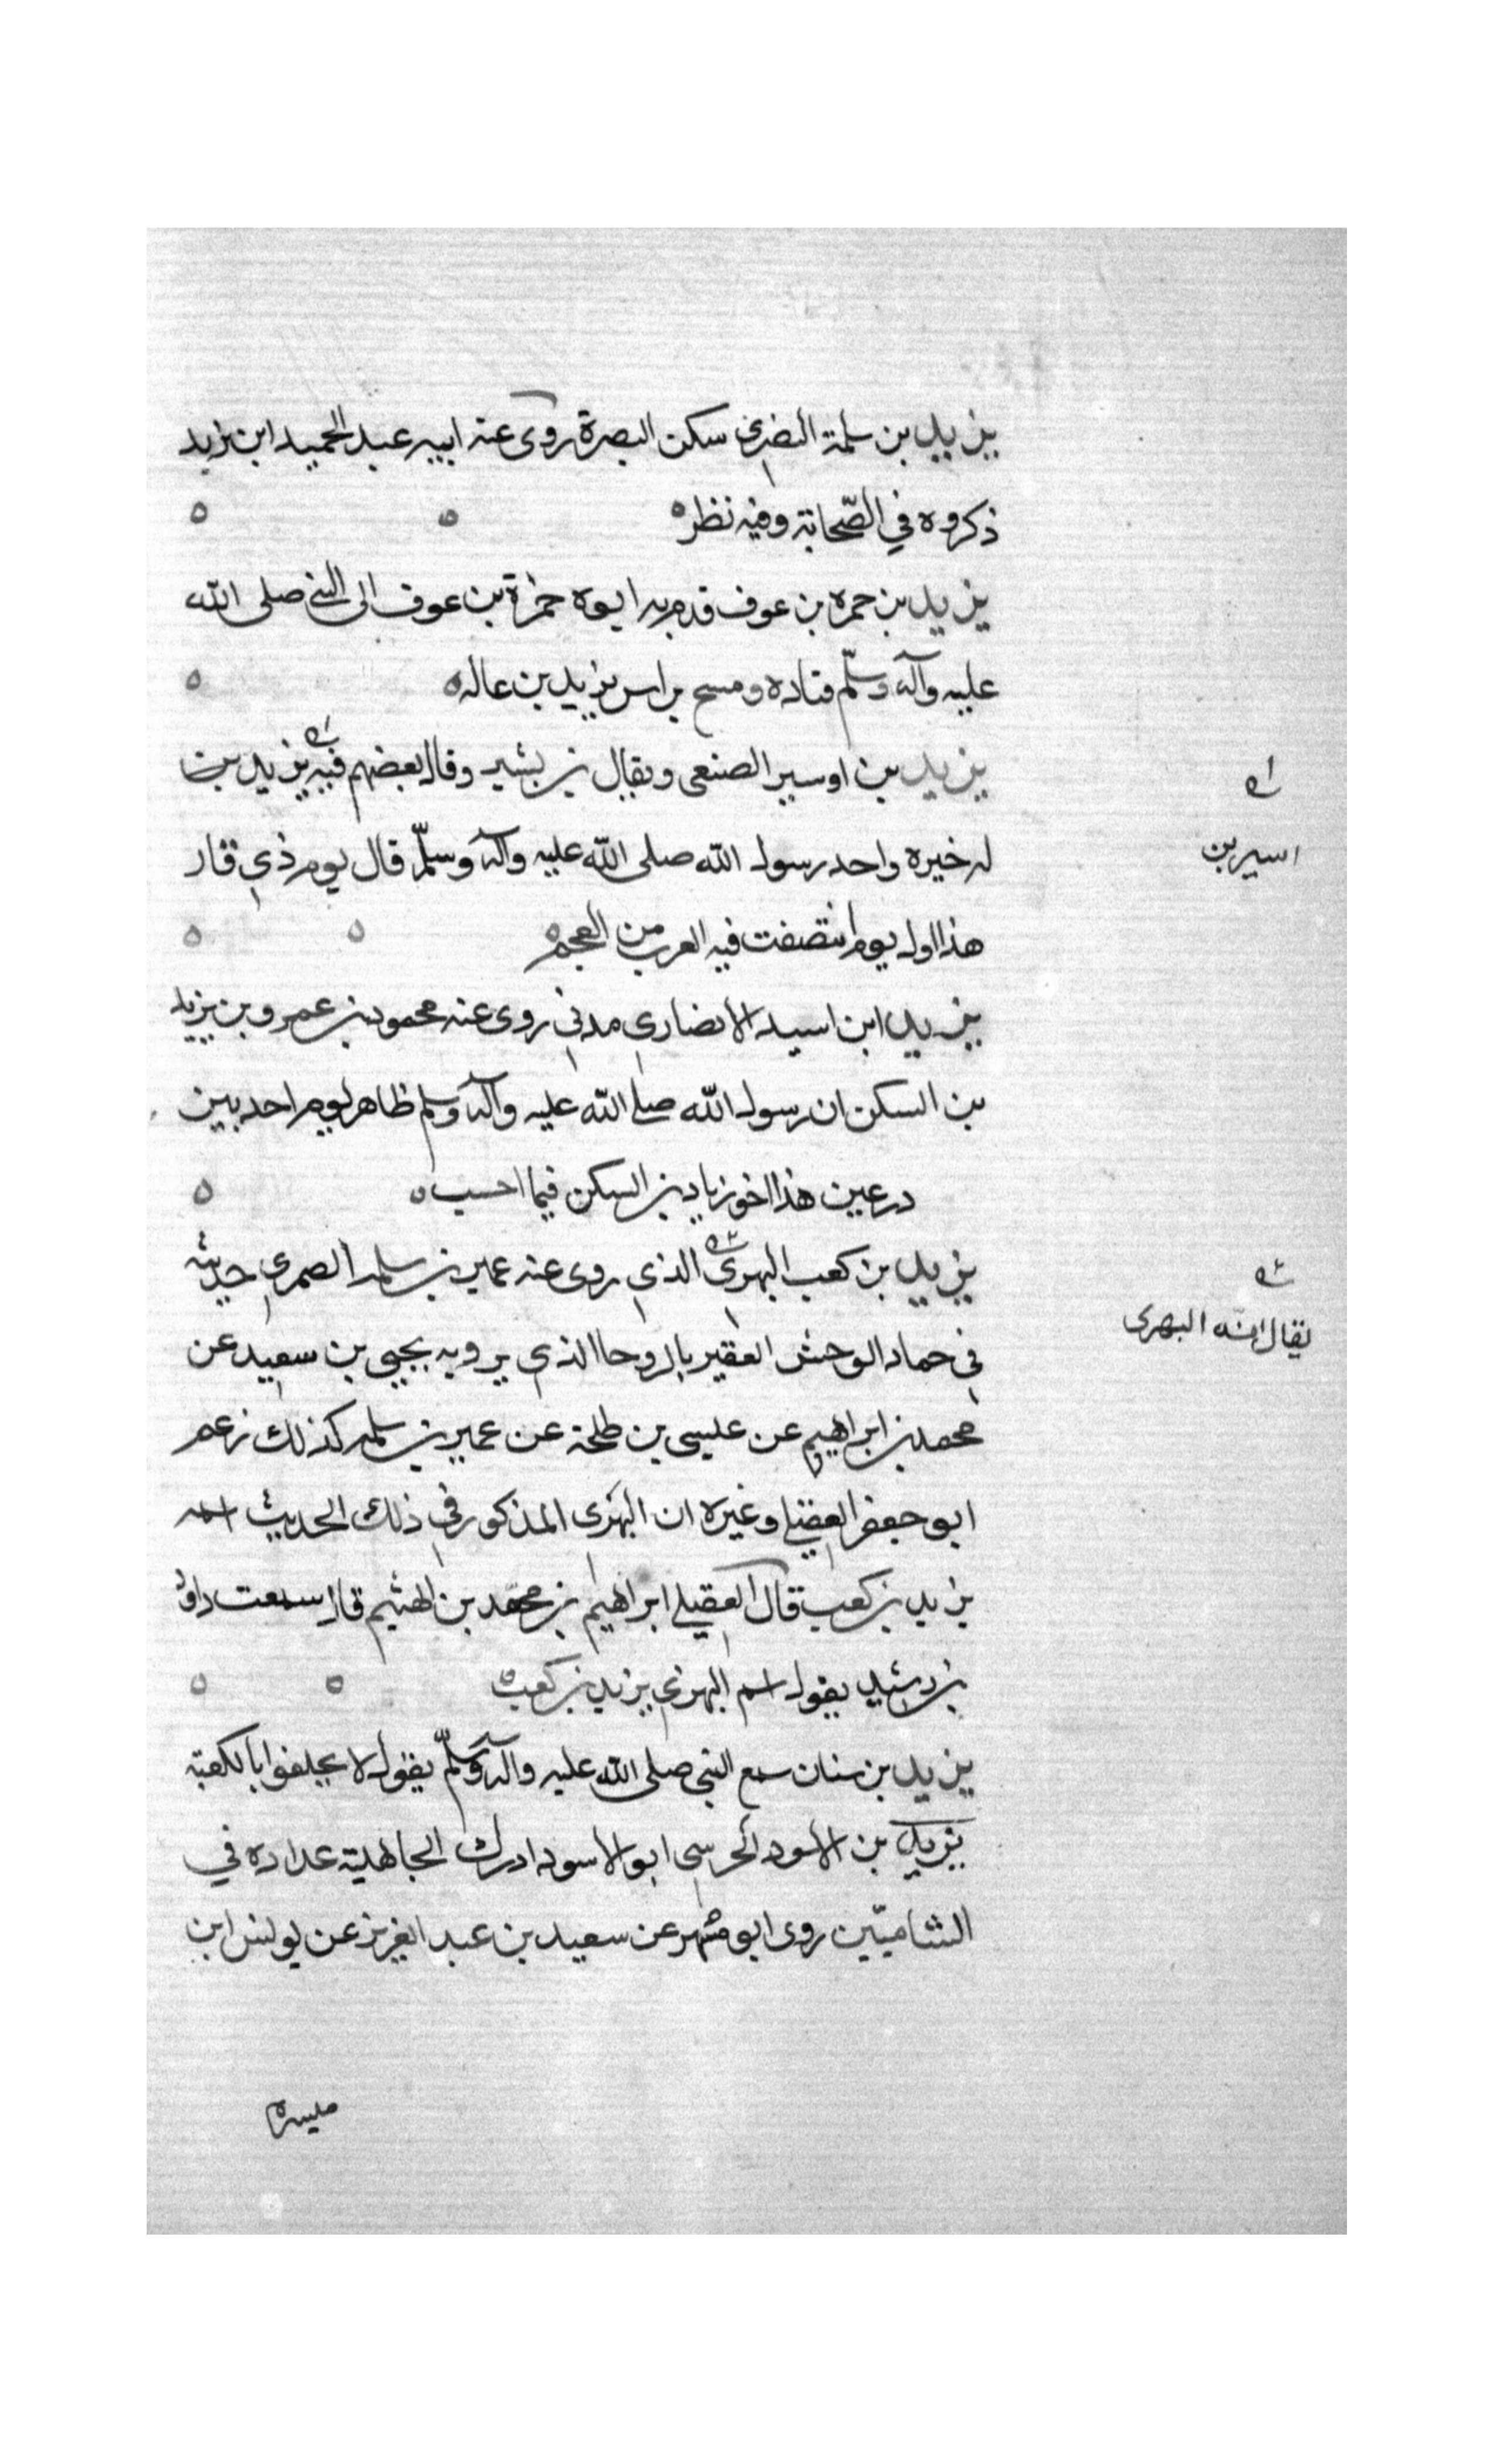 يزيد بن سلمة الضري سكن البصرة روى عنه ابيه عبد الحميد ابن يزيد
ذكروه في الصّحابة وفيه نظر ه
يزيد بن حمزه بن عوف قدم به ابوه حمزة بن عوف الى النبي صلى الله
عليه وآله وسلّم فتاده ومسح براس يزيد بن عاله ه
يزيد بن اوسير الصنعى ويقال بن بشير وقال بعضهم فيه يزيد بن
اسير بن
له خيره واحد رسول الله صلى الله عليه وآله وسلّم قال يوم ذي قار
هذا اول يوم انتصفت فيه العرب من العجم ه
يزيد ابن اسيد الانصاري مدني روى عنه محمود بن عمرو بن يزيد
بن السكن ان رسول الله صلى الله عليه وآله وسلم ظاهر يوم احد بين
درعين هذا اخو زياد بن السكن فيما احسب ه
يزيد بن كعب البهرى الذي روى عنه عمير بن سلمه الصمري حديثه
يقال انّه البهرى
في حماد الوحش العقير بالروحا الذي يرويه يحيى بن سعيد عن
محمد بن ابراهيم عن عليسى بن طلحة عن عمير بن سلمه كذلك زعم
ابو جعفر العقيلي وغيره ان البهزى المذكور في ذلك الحديث اسمه
يزيد بن كعب قال العقيلي ابراهيم بن محمد بن الهثيم قال سمعت داؤد
بن رشيد يقول اسم البهزي يزيد بن كعب ه
يزيد بن سنان سمع النبي صلى الله عليه وآله وسلّم يقول لا يحلفوا بالكعبة
يزيد بن الاسود الحرسى ابو الاسود ادرك الجاهلية عداده في
الشاميّين روى ابو مسهر عن سعيد بن عبد العزيز عن يونس ابن
ميسرة